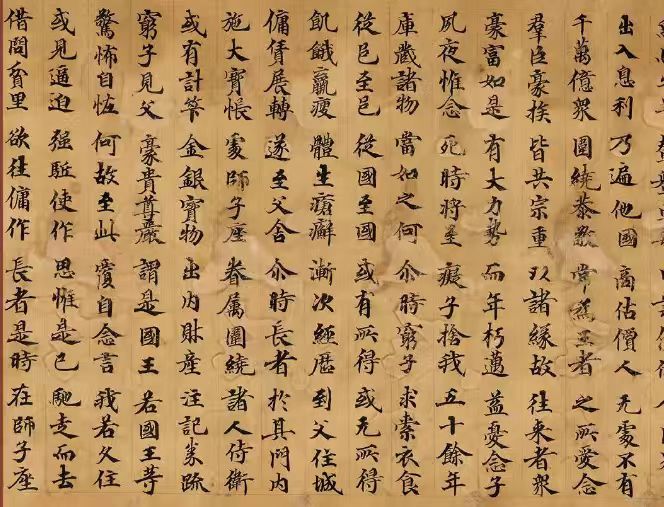 出入息利 乃遍他國 商估價人 无處不有
千萬億衆 圍繞恭敬 常爲王者 之所愛念
羣臣豪族 皆共宗重 以諸緣故 往來者衆
豪富如是 有大力勢 而年朽邁 益憂念子
夙夜惟念 死時將至 癡子捨我 五十餘年
庫藏諸物 當如之何 尒時窮子 求索衣食
從邑至邑 從國至國 或有所得 或无所得
飢餓羸瘦 體生瘡癬 漸次經歷 到父住城
傭賃展轉 遂至父舍 尒時長者 於其門内
施大寶帳 處師子座 眷属圍繞 諸人侍衛
或有計筭 金銀寶物 出内財産 注記券疏
窮子見父 豪貴尊嚴 謂是國王 若國王等
驚怖自恠 何故至此 覆自念言 我若久住
或見逼迫 强駈使作 思惟是已 馳走而去
借問貧里 欲往傭作 長者是時 在師子座